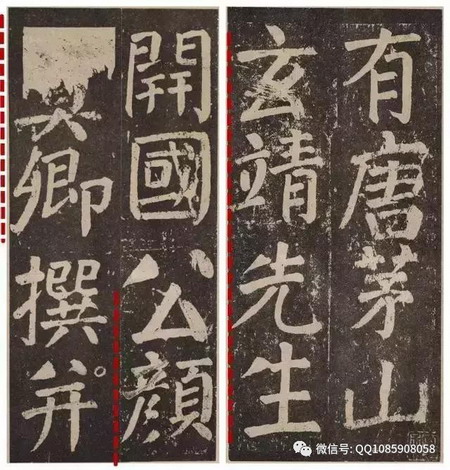 有唐茅山
玄靖先生
開國公顏
卿撰并
微信号: QQ1085908058